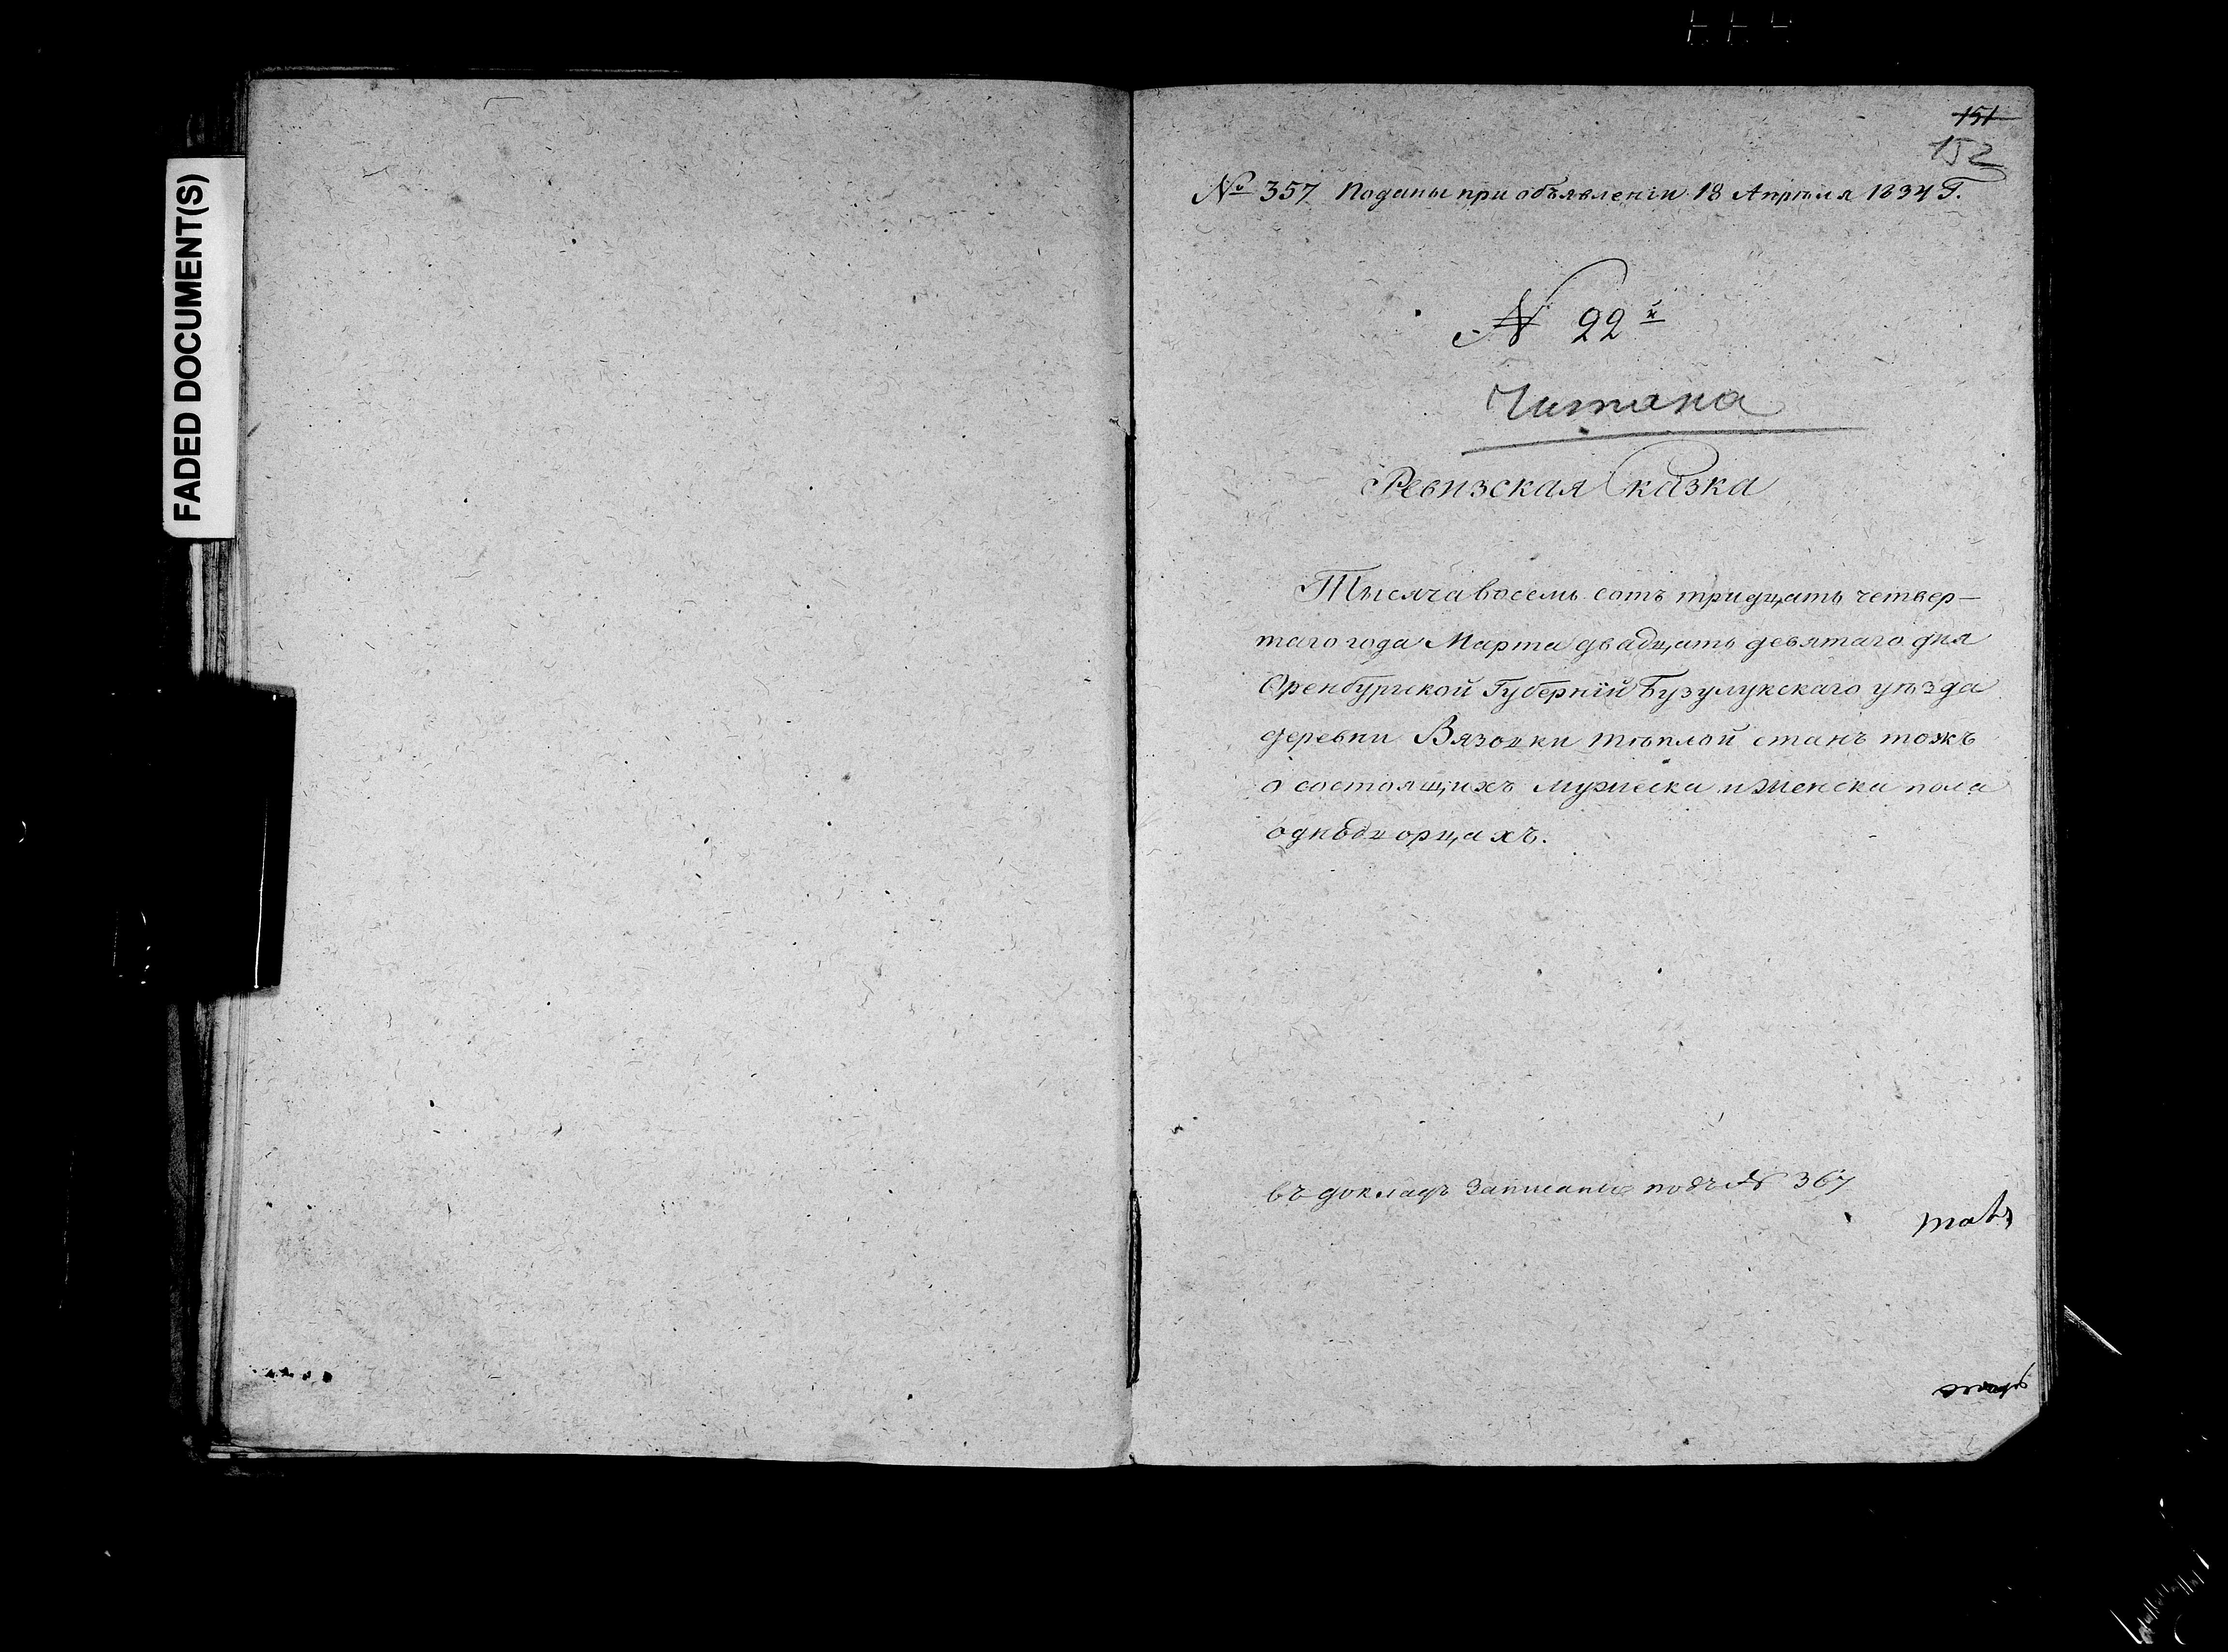 FADED DOCUMENT(S)
151
152
№ 357 Поданы при объявленіи 18 Апрѣля 1834 Г.
№ 22й
Читана
Ревизская Сказка
Тысяча восемь сотъ тридцать четвер-
таго года Марта двадцать девятаго дня
Оренбургской Губерніи Бузулукскаго уѣзда
деревни Вязовки тѣплой станъ тожъ
о состоящихъ мужеска и женска пола
однѣдворцахъ.
въ докладъ Записаны подъ № 367